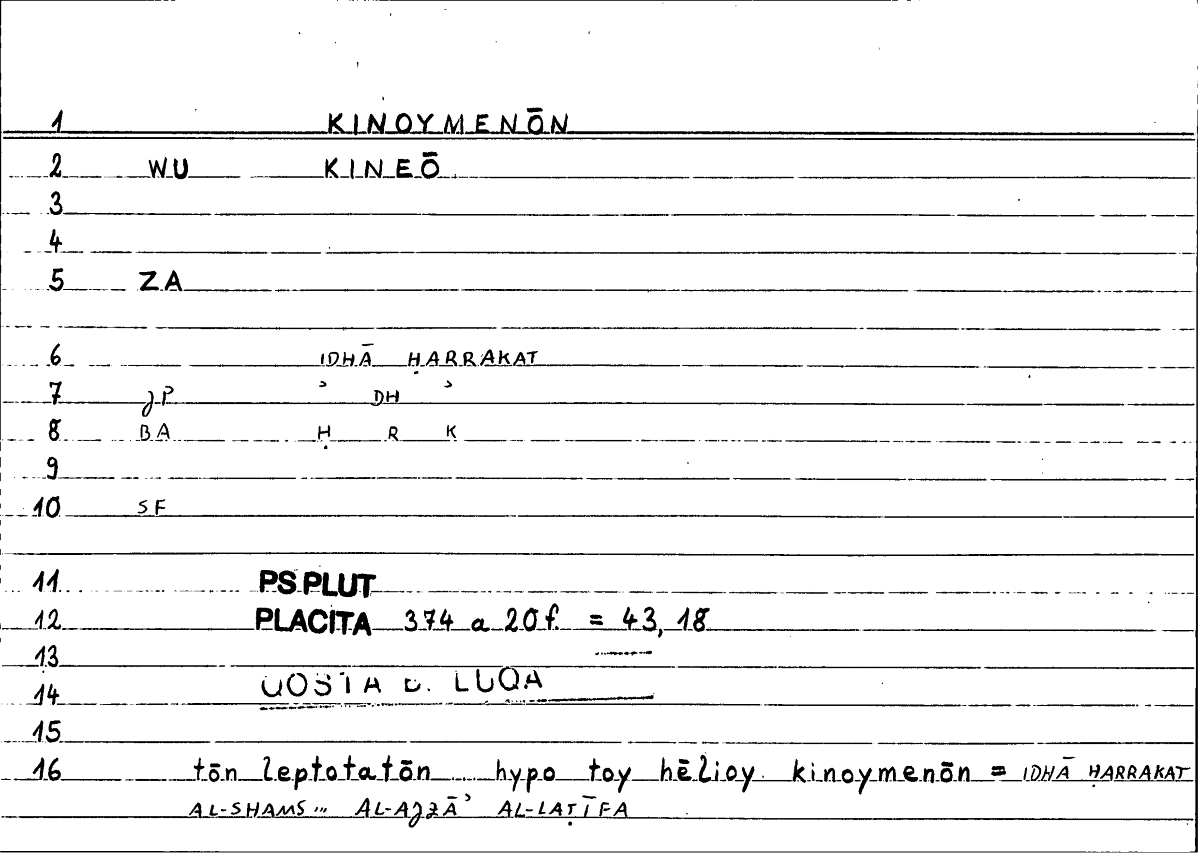 1 KINOYMENŌN
2 WU KINEŌ
3
4
5 ZA
6 IDHĀ ḤARRAKAT
7 JP ʾ DH ʾ
8 BA Ḥ R K
9
10 SF
11 PS.PLUT
12 PLACITA 374 a 20f. = 43,18
13
14 QOSTA B. LUQA
15
16 tōn leptotatōn hypo toy hēlioy kinoymenōn = IDHĀ ḤARRAKAT
AL-SHAMS... AL-AJZĀʾ AL-LAṬĪFA